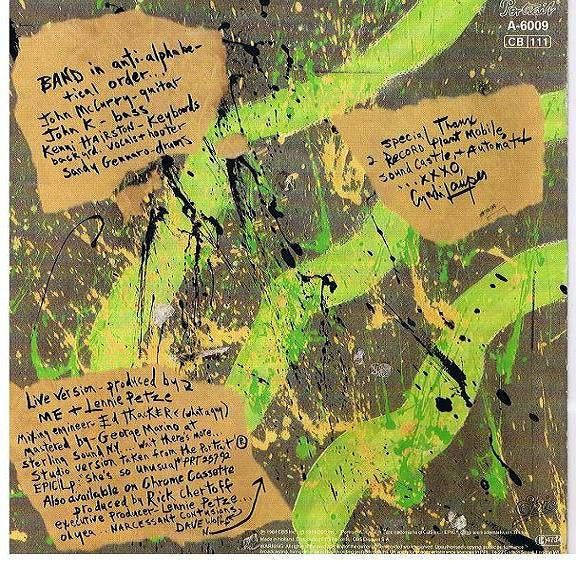 Portrait
A-6009
CB 111
BAND in anti-alphabe-
tical order...
John McCurry-guitar
John K - bass
Kenni HAIRSTON - Keyboards
backard vocals+hooter
Sandy Gennaro-drums
special Thanx
2 Record Plant Mobile,
Sound Castle, + Automatt
...xxxo,
Cyndi Lauper
Live version - produced by 2
ME + Lennie Petze
Mixing engineer- Ed THACKER (what a guy)
Mastered by - George Marino at
Sterling Sound NY... Wait there's more...
Studio version taken from the Portrait ®
EPIC LP: She's so unusual PRT 25792
Also available on Chrome Cassette
produced by Rick Chertoff
executive producer- Lennie Petze...
oh yea... NARCESSANT CONTUSIONS
DAVE Wolff